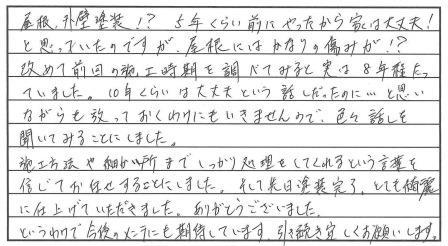 屋根、外壁塗装!? 5年くらい前にやったから家は大丈夫!
と思っていたのですが、屋根にはかなりの傷みが!?
改めて前回の施工時期を調べてみると実は8年程たっ
ていました。10年くらいは大丈夫という話しだったのに…と思い
ながらも放っておくわけにもいきませんので、色々話しを
聞いてみることにしました。
施工方法や細かい所までしっかり処理をしてくれるという言葉を
信じてお任せすることにしました。そして先日塗装完了。とても綺麗
に仕上げていただきました。ありがとうございました。
というわけで今後のメンテにも期待しています。引き続き宜しくお願いします。